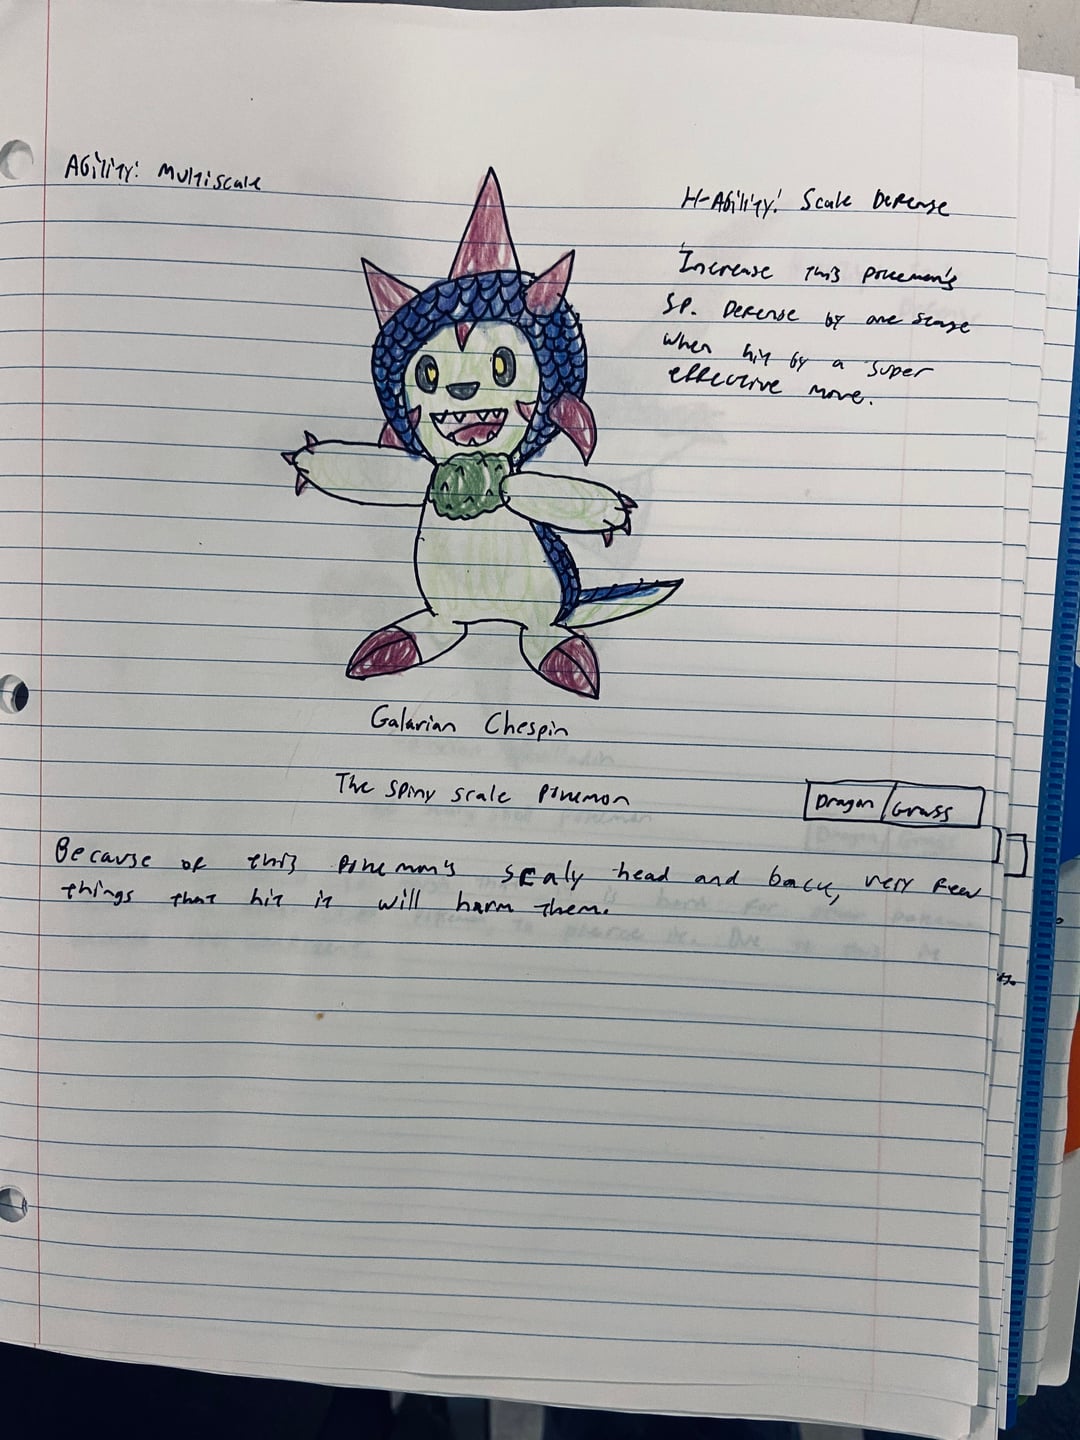 Ability: Multiscale
H-Ability: Scale Defense
Increase this pokemon's
SP. Defense by one stage
when hit by a super
effective move.
Galarian Chespin
The spiny scale Pokemon
Dragon/Grass
Because of this pokemon's scaly head and back, very few
things that hit it will harm them.